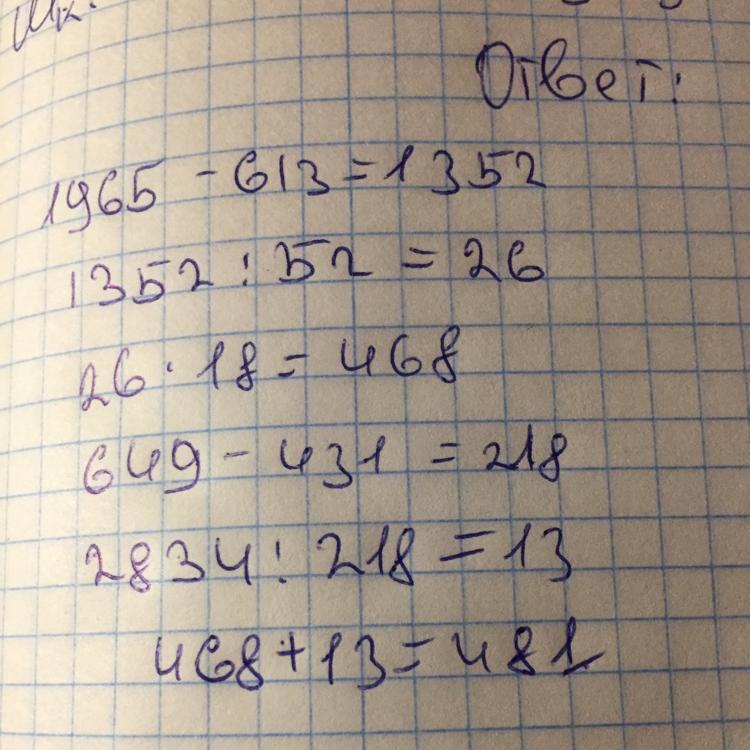 Ответ:
1965 - 613 = 1352
1352 : 52 = 26
26 · 18 = 468
649 - 431 = 218
2834 : 218 = 13
468 + 13 = 481